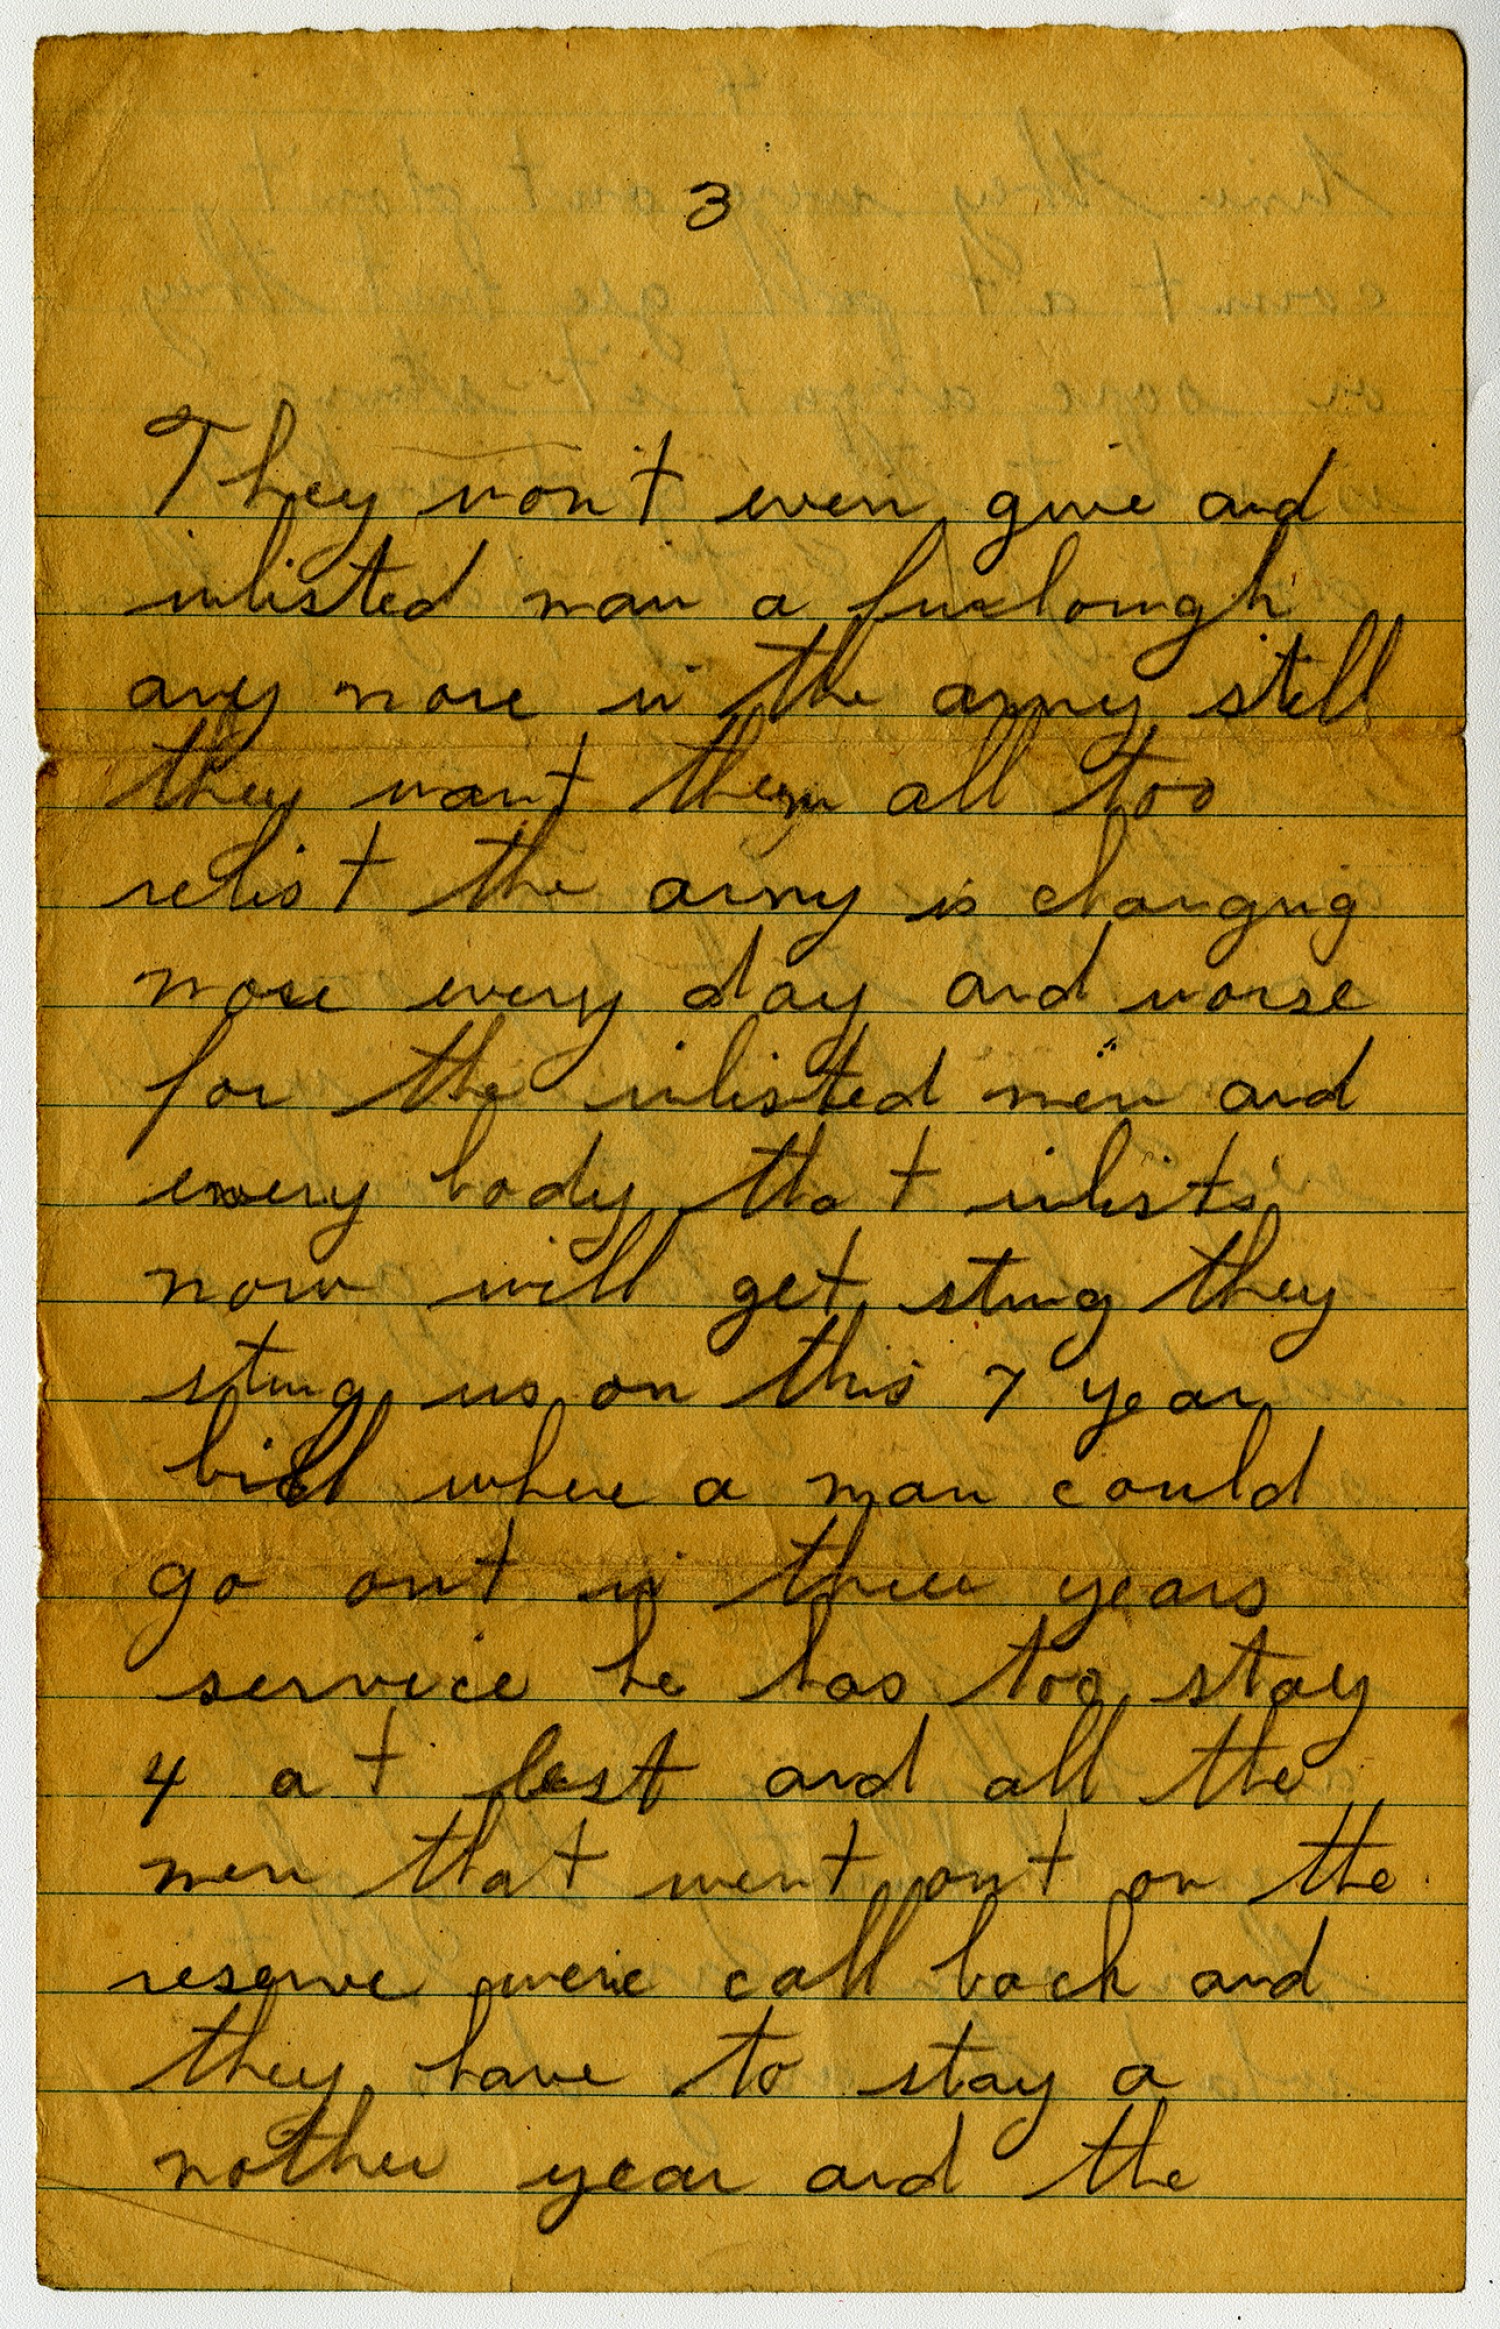 3
They won't even give and
inlisted man a furlough
any more in the army still
they want them all too
relist the army is changing
more every day and worse
for the inlisted men and
every body that inlists
now will get stung they
stung us on this 7 year
bill where a man could
go out in three years
service he has too stay
4 at lest and all the
men that went out on the
reserve were call back and
they have to stay a
nother year and the